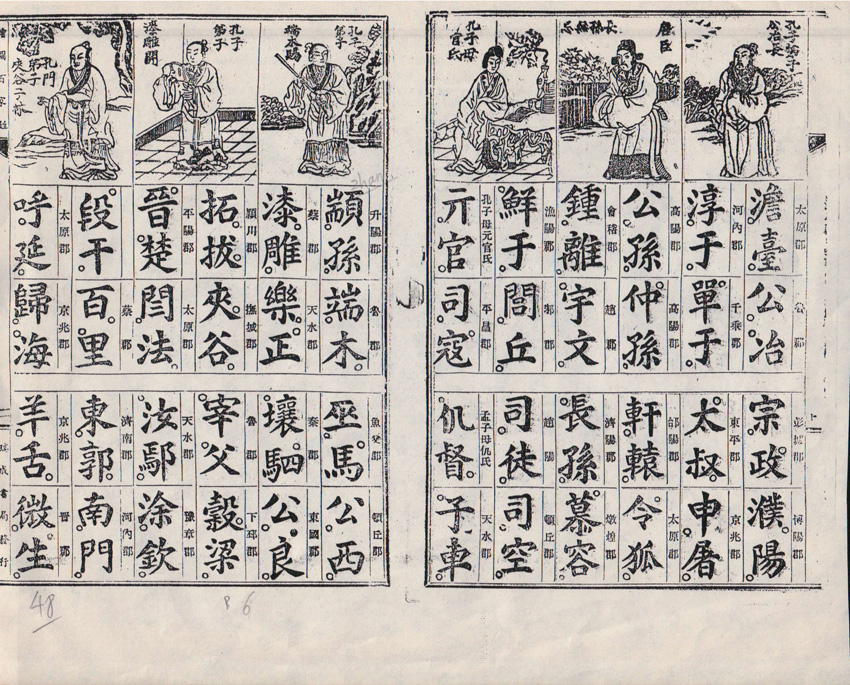 孔子弟子
公冶長
唐臣
長孫無忌
孔子母
官氏
太原郡 魯郡 彭城郡 博陽郡
澹臺 公冶 宗政 濮陽
河內郡 千乘郡 東平郡 京兆郡
淳于 單于 太叔 申屠
高陽郡 高陽郡 郃陽郡 太原郡
公孫 仲孫 軒轅 令狐
會稽郡 趙郡 濟陽郡 燉煌郡
鍾離 宇文 長孫 慕容
漁陽郡 趙陽 頓丘郡
鮮于 閭丘 司徒 司空
孔子母亓官氏 平昌郡 孟子母仉氏 天水郡
亓官 司寇 仉督 子車
孔子
弟子
端木賜
孔子
弟子
漆雕開
孔門
弟子
升陽郡 魯郡 頓丘郡
顓孫 端木 巫馬 公西
蔡郡 天水郡 秦郡 東國郡
漆雕 樂正 壤駟 公良
潁川郡 撫城郡 魯郡 下邳郡
拓拔 夾谷 宰父 穀梁
平陽郡 太原郡 天水郡 豫章郡
晉楚 閆法 汝鄢 涂欽
蔡郡 濟南郡 河內郡
段干 百里 東郭 南門
太原郡 京兆郡 京兆郡 晉郡
呼延 歸海 羊舌 微生
瑞成書局發行
48